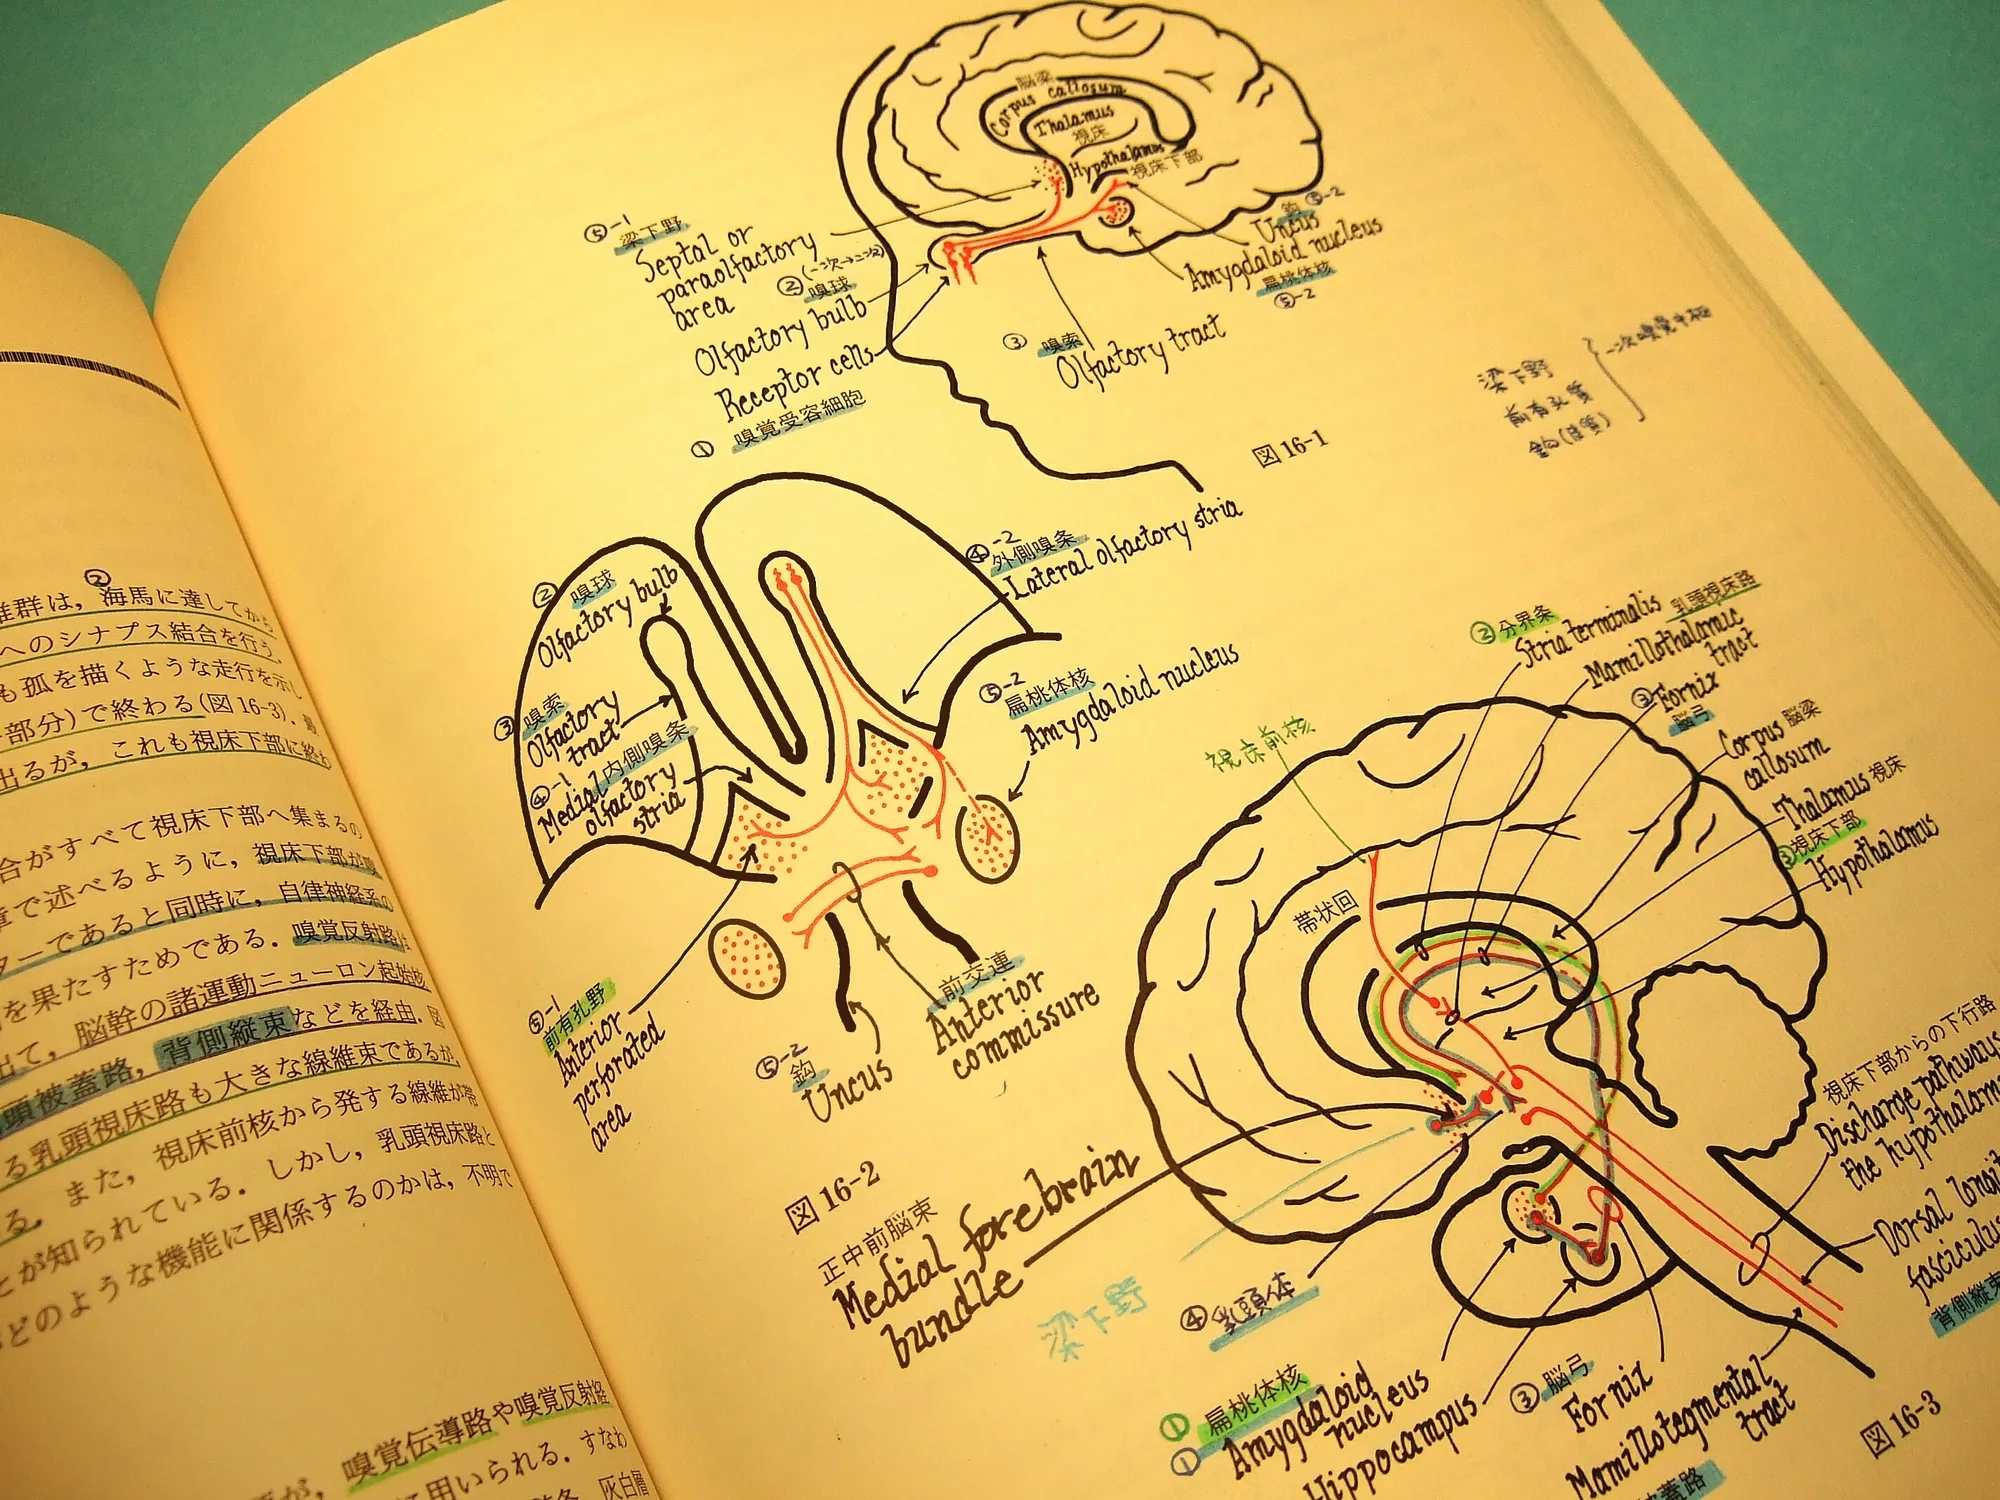 ②
は，海馬に達してから
へのシナプス結合を行う．
も孤を描くような走行を示し
部分）で終わる（図16-3）．
出るが，これも視床下部に終わ
合がすべて視床下部へ集まるの
章で述べるように，視床下部が
ターであると同時に，自律神経系の
を果たすためである．嗅覚反射路は
出て，脳幹の諸運動ニューロン起始核
頭被蓋路，背側縦束などを経由．図
る乳頭視床路も大きな線維束であるが，
る．また，視床前核から発する線維が帯
とが知られている．しかし，乳頭視床路と
どのような機能に関係するのかは，不明で
が，嗅覚伝導路や嗅覚反射経
に用いられる．すなわ
灰白層
脳梁
Corpus callosum
Thalamus
視床
Hypothalamus
視床下部
⑤-1
梁下野
Septal or
paraolfactory
area
②(一次→二次)
嗅球
Olfactory bulb
Receptor cells
① 嗅覚受容細胞
③ 嗅索
Olfactory tract
鈎 ⑤-2
Uncus
Amygdaloid nucleus
扁桃体核
⑤-2
図 16-1
梁下野
前有孔質
鈎(皮質)
一次嗅覚中枢
② 嗅球
Olfactory bulb
③ 嗅索
Olfactory
tract
④-1
内側嗅条
Medial
olfactory
stria
④-2
外側嗅条
Lateral olfactory stria
⑤-2
扁桃体核
Amygdaloid nucleus
⑤-1
前有孔野
Anterior
perforated
area
⑤-2
鈎
Uncus
前交連
Anterior
commissure
図 16-2
②分界条
Stria terminalis
乳頭視床路
Mamillothalamic
tract
③Fornix
脳弓
Corpus 脳梁
callosum
Thalamus 視床
③視床下部
Hypothalamus
視床前核
帯状回
視床下部からの下行路
Discharge pathways
the hypothalam
Dorsal longit
fasciculus
背側縦束
正中前脳束
Medial forebrain
bundle
梁下野
④乳頭体
①扁桃体核
①Amygdaloid
nucleus
Hippocampus
③脳弓
Fornix
Mamillotegmental
tract
被蓋路
図 16-3